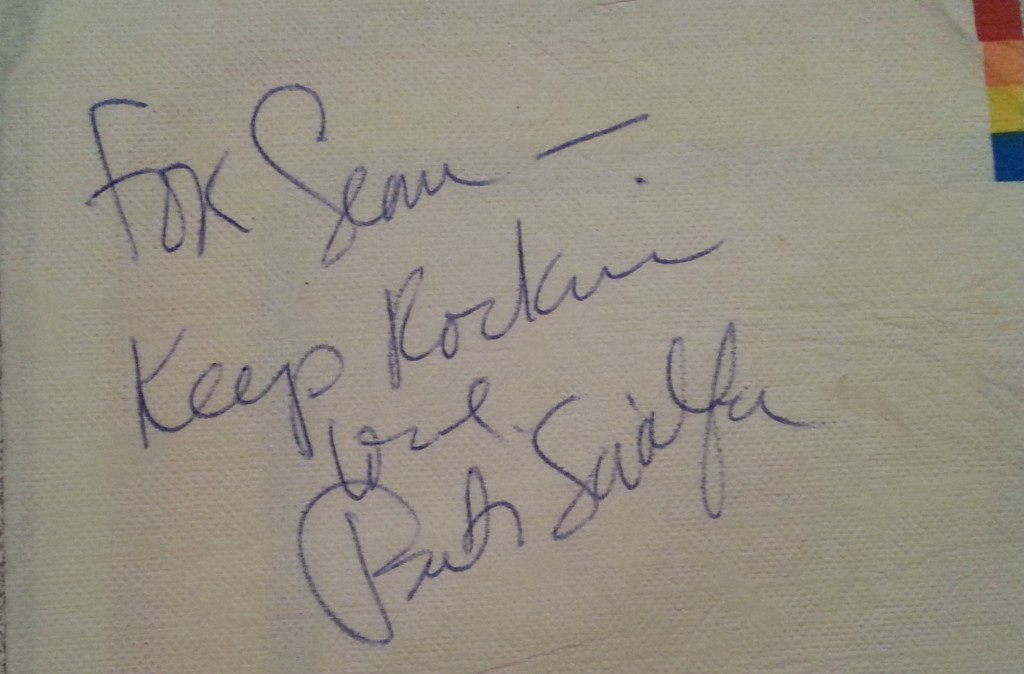 For Sean —
Keep Rockin
Love
Patti Scialfa